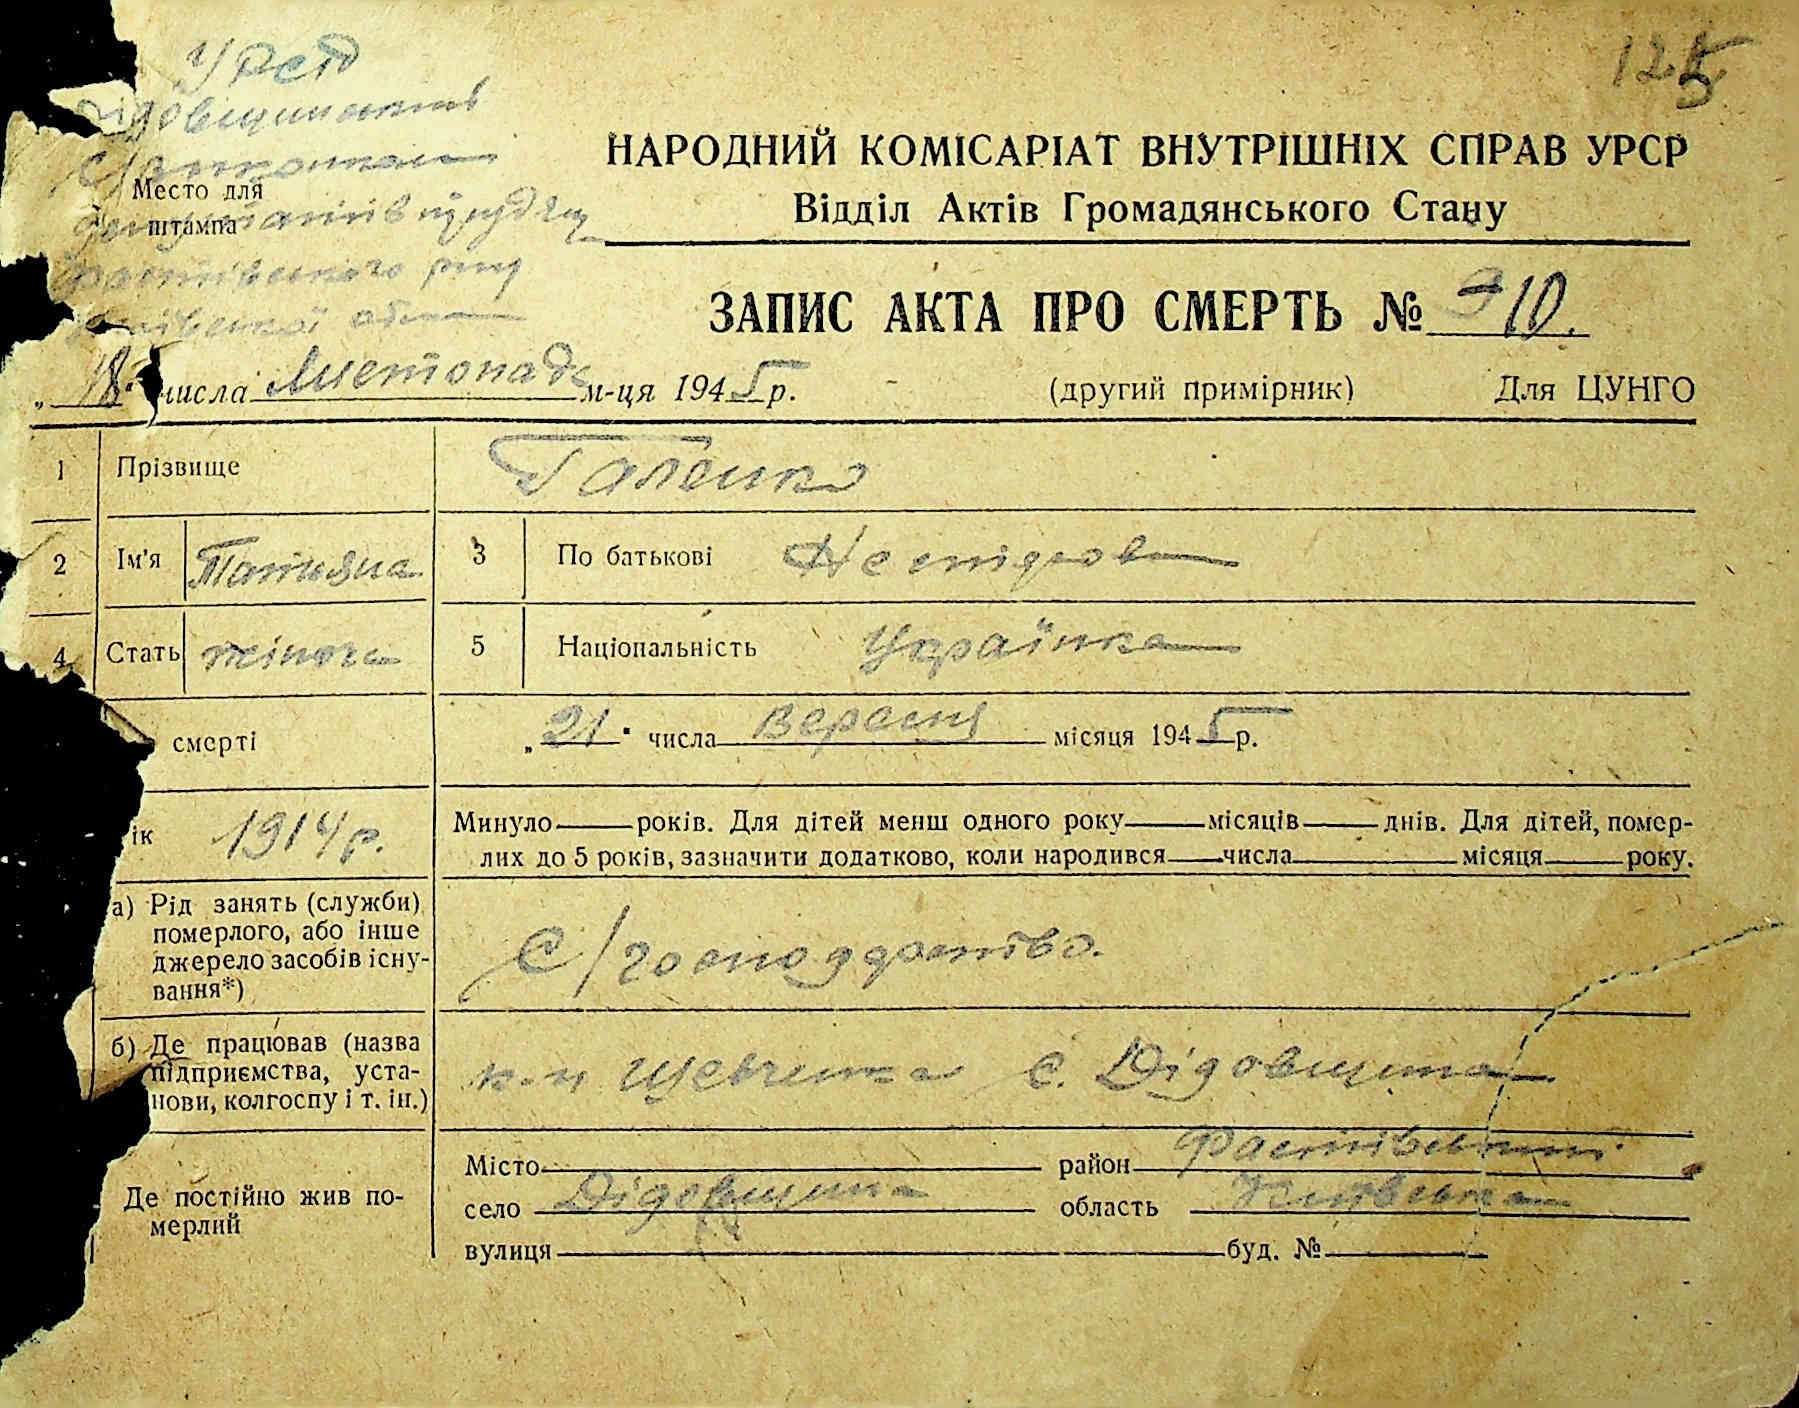 125
УРСР
Дідовщинської
с/виконком
депутатів трудящ
Фастівського р-ну
Київської обл
Место для
штампа
НАРОДНИЙ КОМІСАРІАТ ВНУТРІШНІХ СПРАВ УРСР
Відділ Актів Громадянського Стану
ЗАПИС АКТА ПРО СМЕРТЬ № 10.
„18" числа Листопада м-ця 1945 р. (другий примірник) Для ЦУНГО
1 Прізвище Галенко
2 Ім'я Татияна 3 По батькові
4 Стать жіноча 5 Національність Українка
смерті „21" числа Вересня місяця 1945 р.
ік 1914 р. Минуло років. Для дітей менш одного року місяців днів. Для дітей, помер-
лих до 5 років, зазначити додатково, коли народився числа місяця року.
а) Рід занять (служби)
померлого, або інше
джерело засобів існу-
вання*)
С/господарство.
б) Де працював (назва
підприємства, уста-
нови, колгоспу і т. ін.)
к-п Шевченка с. Дідовщина
Де постійно жив по-
мерлий
Місто район Фастівський
село Дідовщина область Київська
вулиця буд. №